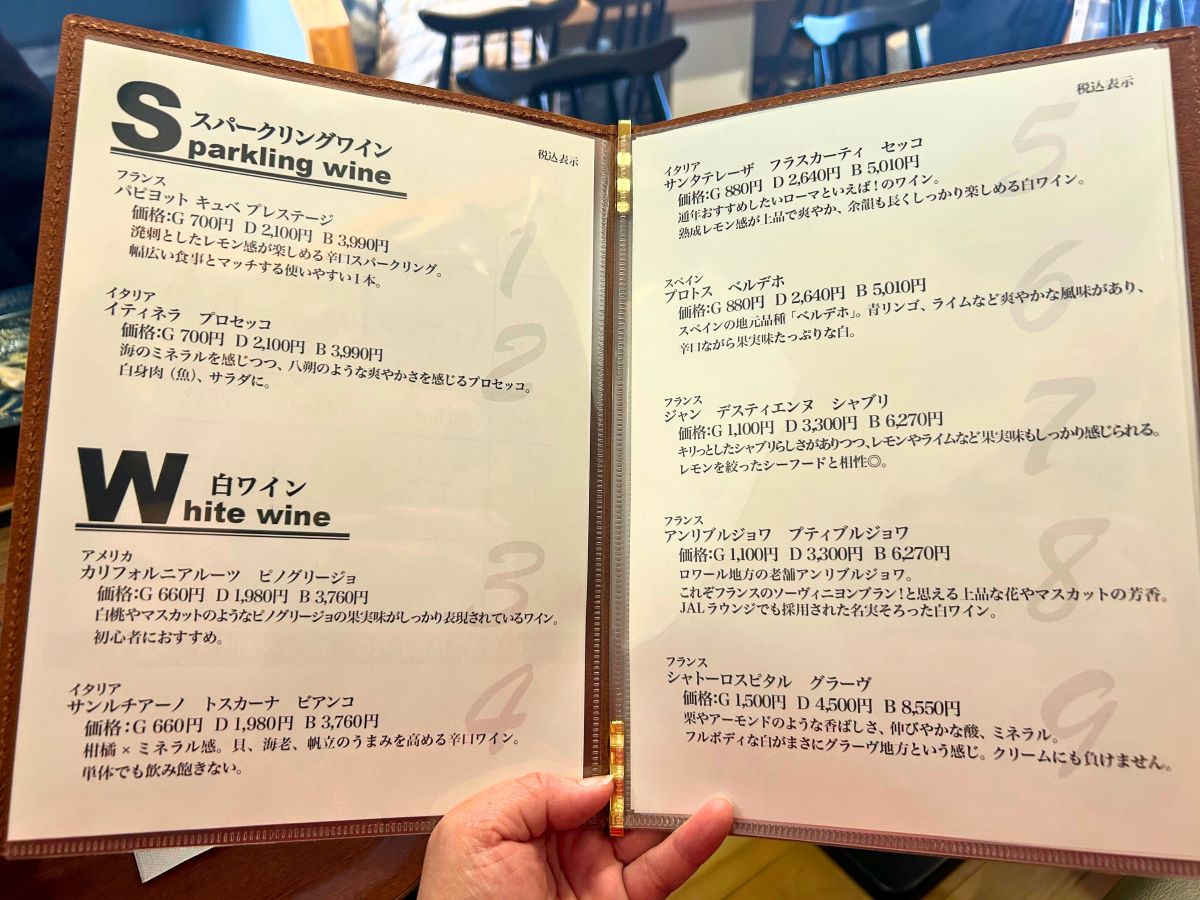 スパークリングワイン
Sparkling wine
税込表示
フランス
パピヨット キュベ プレステージ
価格:G 700円 D 2,100円 B 3,990円
溌剌としたレモン感が楽しめる辛口スパークリング。
幅広い食事とマッチする使いやすい1本。
1
イタリア
イティネラ プロセッコ
価格:G 700円 D 2,100円 B 3,990円
海のミネラルを感じつつ、八朔のような爽やかさを感じるプロセッコ。
白身肉（魚）、サラダに。
2
白ワイン
White wine
アメリカ
カリフォルニアルーツ ピノグリージョ
価格:G 660円 D 1,980円 B 3,760円
白桃やマスカットのようなピノグリージョの果実味がしっかり表現されているワイン。
初心者におすすめ。
3
イタリア
サンルチアーノ トスカーナ ビアンコ
価格:G 660円 D 1,980円 B 3,760円
柑橘×ミネラル感。貝、海老、帆立のうまみを高める辛口ワイン。
単体でも飲み飽きない。
4
税込表示
イタリア
サンタテレーザ フラスカーティ セッコ
価格:G 880円 D 2,640円 B 5,010円
通年おすすめしたいローマといえば!のワイン。
熟成レモン感が上品で爽やか、余韻も長くしっかり楽しめる白ワイン。
5
スペイン
プロトス ベルデホ
価格:G 880円 D 2,640円 B 5,010円
スペインの地元品種「ベルデホ」。青リンゴ、ライムなど爽やかな風味があり、
辛口ながら果実味たっぷりな白。
6
フランス
ジャン デスティエンヌ シャブリ
価格:G 1,100円 D 3,300円 B 6,270円
キリっとしたシャブリらしさがありつつ、レモンやライムなど果実味もしっかり感じられる。
レモンを絞ったシーフードと相性◎。
7
フランス
アンリブルジョワ プティブルジョワ
価格:G 1,100円 D 3,300円 B 6,270円
ロワール地方の老舗アンリブルジョワ。
これぞフランスのソーヴィニヨンブラン!と思える上品な花やマスカットの芳香。
JALラウンジでも採用された名実そろった白ワイン。
8
フランス
シャトーロスピタル グラーヴ
価格:G 1,500円 D 4,500円 B 8,550円
栗やアーモンドのような香ばしさ、伸びやかな酸、ミネラル。
フルボディな白がまさにグラーヴ地方という感じ。クリームにも負けません。
9